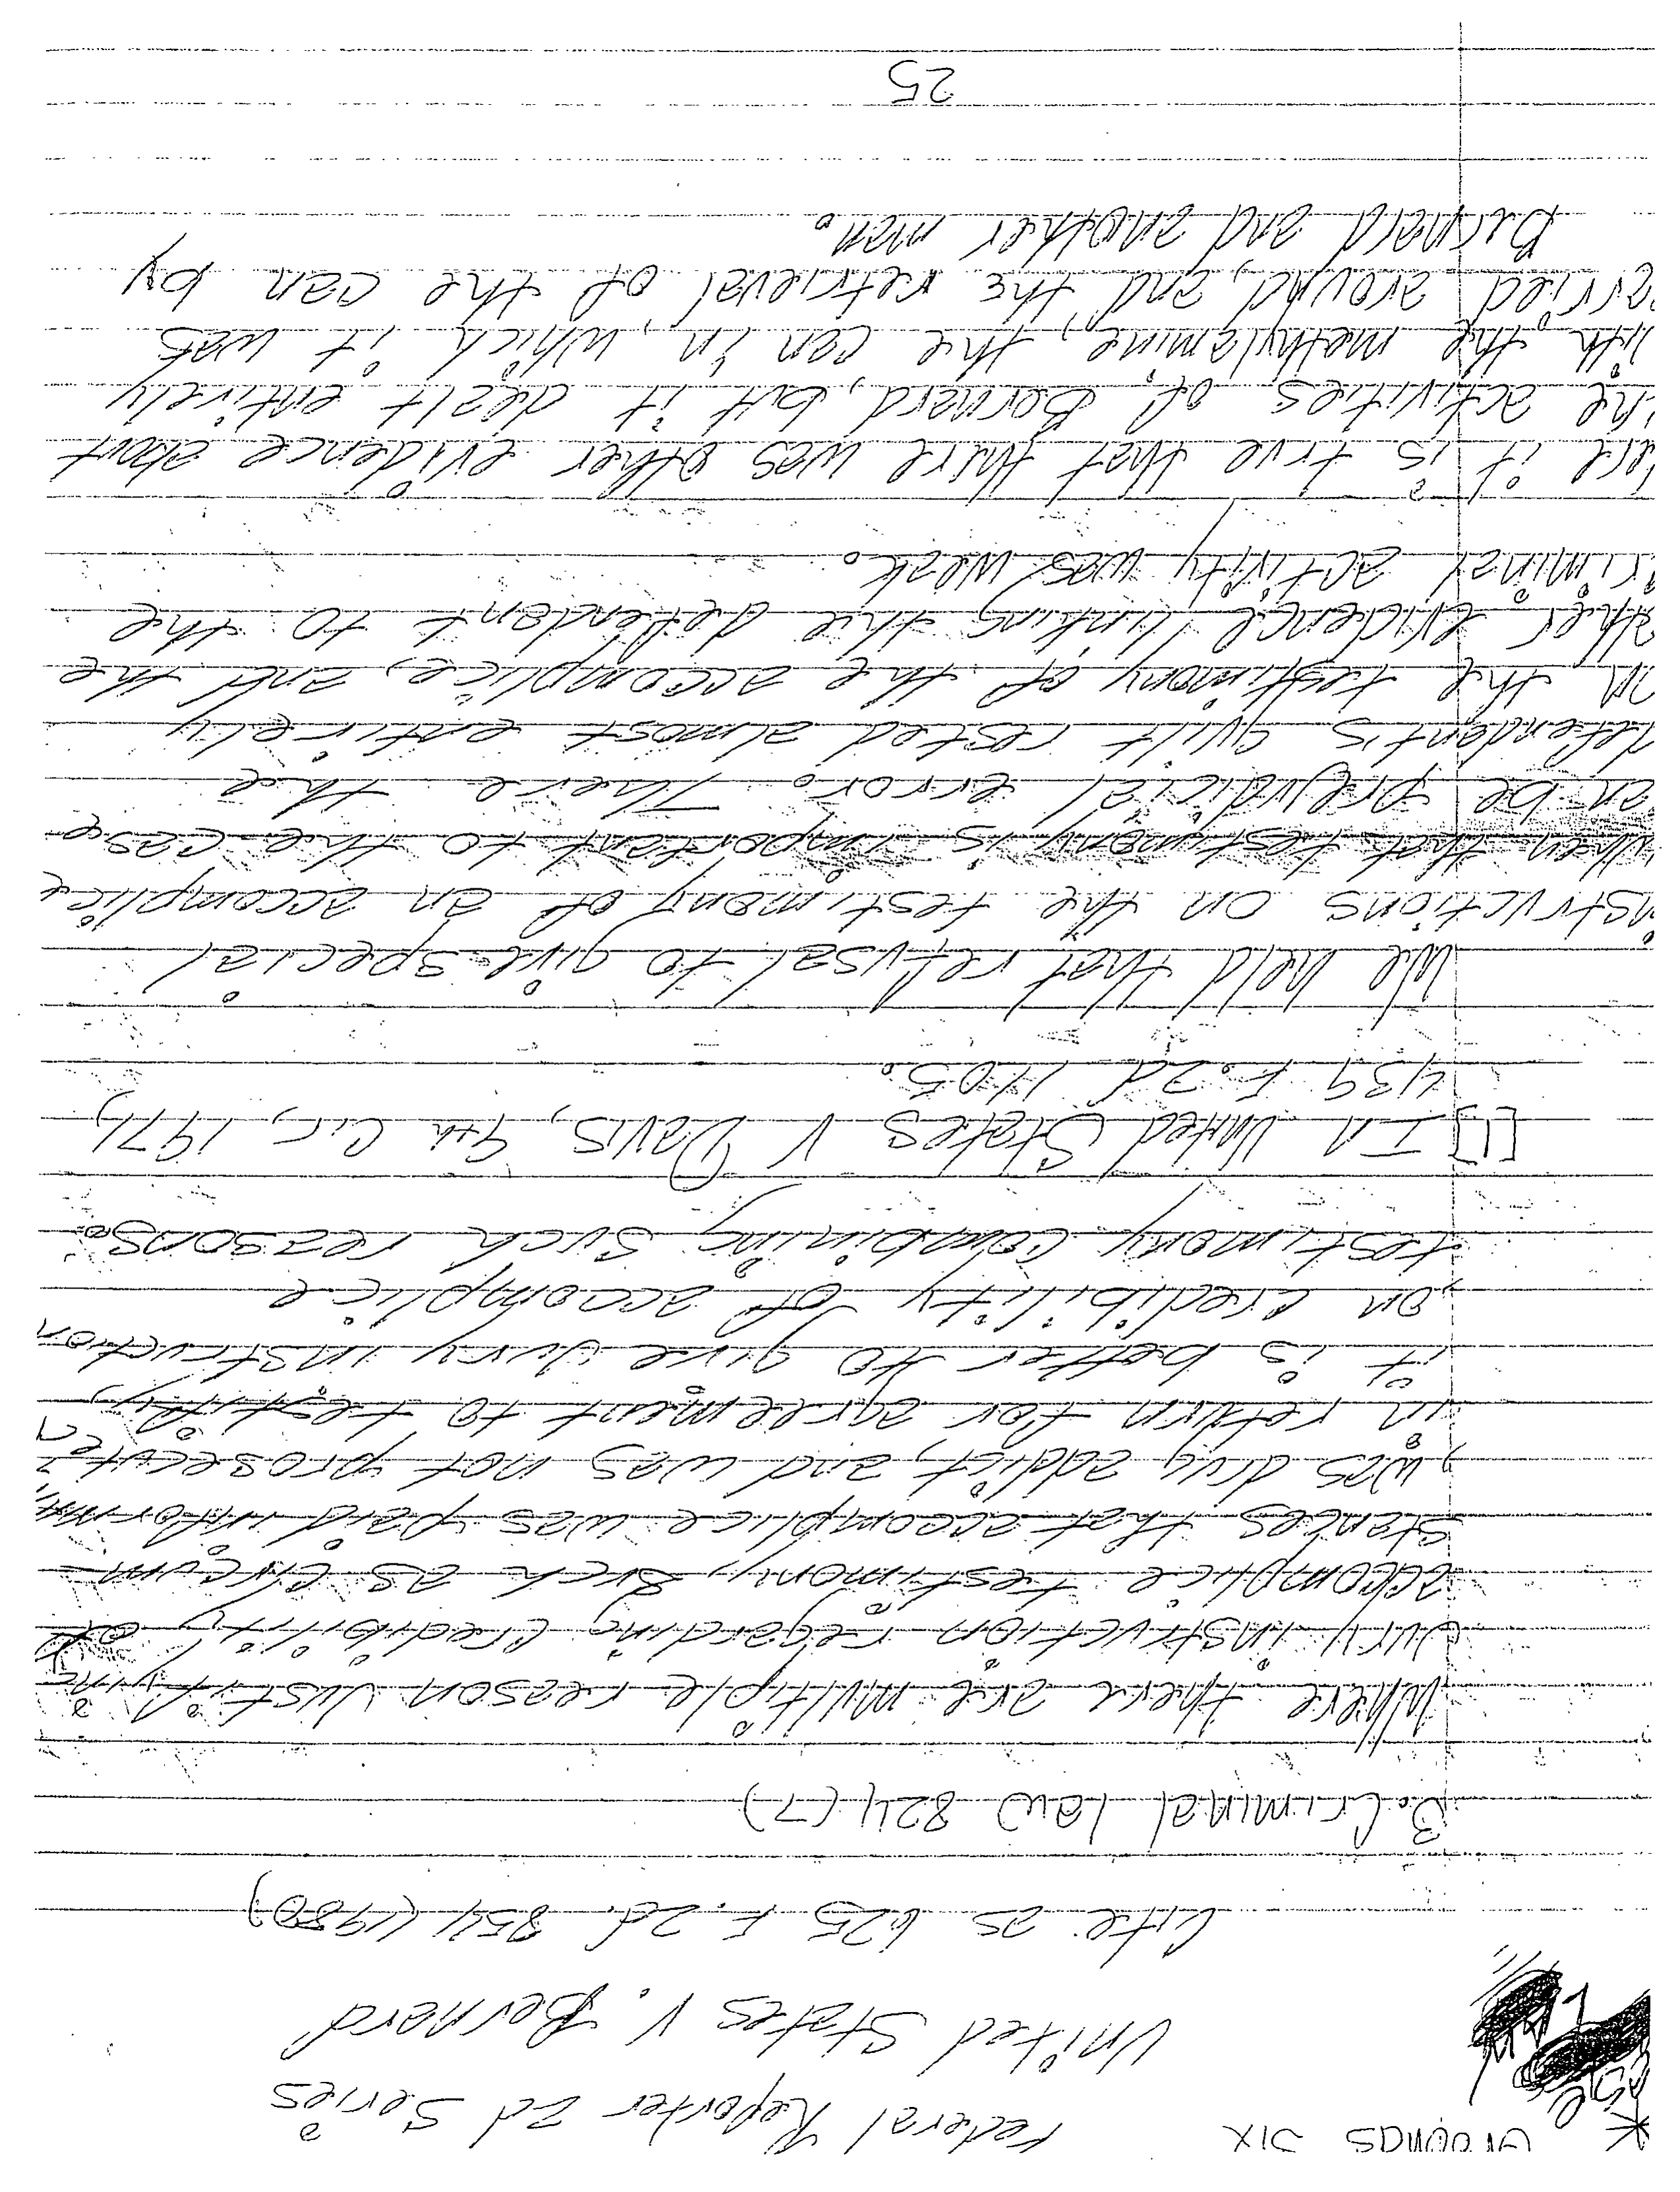 Grounds Six
Federal Reporter 2d Series
United States V. Bernard
Cite as 625 F.2d 854 (1980)
3. Criminal law 824(7)
Where there are multiple reason Justifying
Jury instruction regarding credibility of
accomplice testimony, such as circum-
stances that accomplice was paid
was drug addict, and was not prosecuted
in return for agreement to testify,
it is better to give Jury instruction
on credibility of accomplice
testimony combining such reasons.
[1] In United States V Davis, 9th Cir, 1971,
439 F.2d 1105.
We held that refusal to give special
instructions on the testimony of an accomplice
when that testimony is important to the case
can be prejudicial error. There the
defendant's guilt rested almost entirely
on the testimony of the accomplice, and the
other evidence linking the defendant to the
criminal activity was weak.
Here it is true that there was other evidence about
the activities of Bernard, but it dealt entirely
with the methylamine, the can in which it was
carried around, and the retrieval of the can by
Bernard and another man.
25